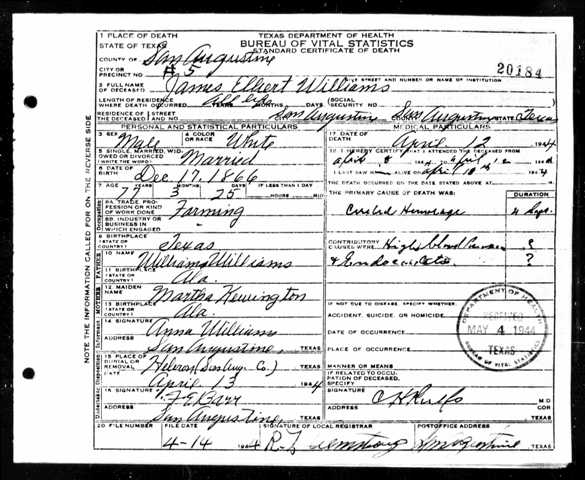 TEXAS DEPARTMENT OF HEALTH
BUREAU OF VITAL STATISTICS
STANDARD CERTIFICATE OF DEATH
20184
1 PLACE OF DEATH
STATE OF TEXAS
COUNTY OF San Augustine
CITY OR PRECINCT NO. #5
GIVE STREET AND NUMBER OR NAME OF INSTITUTION
2 FULL NAME OF DECEASED James Elbert Williams
LENGTH OF RESIDENCE WHERE DEATH OCCURRED All life YEARS MONTHS DAYS
SOCIAL SECURITY NO.
RESIDENCE OF THE DECEASED STREET AND NO. San Augustine San Augustine STATE Texas
PERSONAL AND STATISTICAL PARTICULARS
3 SEX Male
4 COLOR OR RACE White
5 SINGLE, MARRIED, WIDOWED OR DIVORCED (WRITE THE WORD) Married
6 DATE OF BIRTH Dec. 17. 1866
7 AGE 77 3 25 DAYS IF LESS THAN 1 DAY HOURS MIN
8A TRADE, PROFESSION OR KIND OF WORK DONE Farming
8B INDUSTRY OR BUSINESS IN WHICH ENGAGED
9 BIRTHPLACE (STATE OR COUNTRY) Texas
10 NAME William Williams
11 BIRTHPLACE (STATE OR COUNTRY) Ala.
12 MAIDEN NAME Martha
13 BIRTHPLACE (STATE OR COUNTRY) Ala.
14 SIGNATURE Anna Williams
ADDRESS San Augustine, TEXAS
15 PLACE OF BURIAL OR REMOVAL (San Aug. Co.) TEXAS
April 13 1944
16 SIGNATURE
ADDRESS San Augustine, TEXAS
20 FILE NUMBER
FILE DATE 4-14 1944
MEDICAL PARTICULARS
17 DATE OF DEATH April 12 1944
18 I HEREBY CERTIFY THAT I ATTENDED THE DECEASED FROM
April 8 1944 TO April 12 1944
I LAST SAW ALIVE ON Apr 1944
THE DEATH OCCURRED ON THE DATE STATED ABOVE AT M
THE PRIMARY CAUSE OF DEATH WAS: DURATION
4 days
CONTRIBUTORY CAUSES WERE: High blood Pressure ?
?
IF NOT DUE TO DISEASE, SPECIFY WHETHER:
ACCIDENT, SUICIDE, OR HOMICIDE
DATE OF OCCURRENCE
PLACE OF OCCURRENCE
MANNER OR MEANS
IF RELATED TO OCCUPATION OF DECEASED, SPECIFY
SIGNATURE M D
ADDRESS COR TEXAS
SIGNATURE OF LOCAL REGISTRAR
POSTOFFICE ADDRESS TEXAS
DEPARTMENT OF HEALTH
RECEIVED
MAY 4 1944
TEXAS
BUREAU OF VITAL STATISTICS
NOTE THE INFORMATION CALLED FOR ON THE REVERSE SIDE